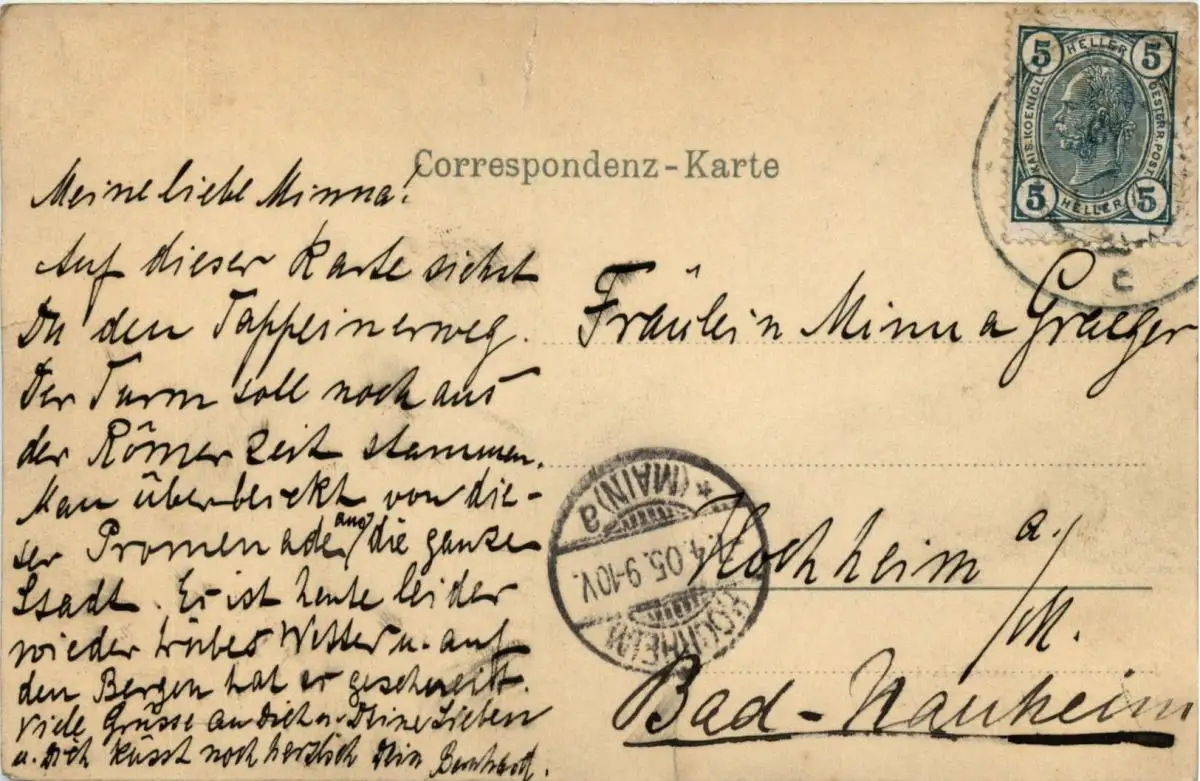 Correspondenz-Karte
5 HELLER 5
KAIS. KOENIGL. OESTERR. POST
5 HELLER 5
C
Meine liebe Minna!
Auf dieser Karte siehst
Du den Tappeinerweg.
Der Turm soll noch aus
der Römerzeit stammen.
Man überblickt von die-
ser Promenade aus die ganze
Stadt. Er ist heute leider
wieder trübes Wetter u. auf
den Bergen hat er geschneit.
Viele Grüsse an Dich u. Deine Lieben
u. Dich küsst noch herzlich Dein Bernhard.
Fräulein Minna Graeger
Hochheim a./M.
Bad-Nauheim
HOCHHEIM
.4.05. 9-10V.
* (MAIN) a